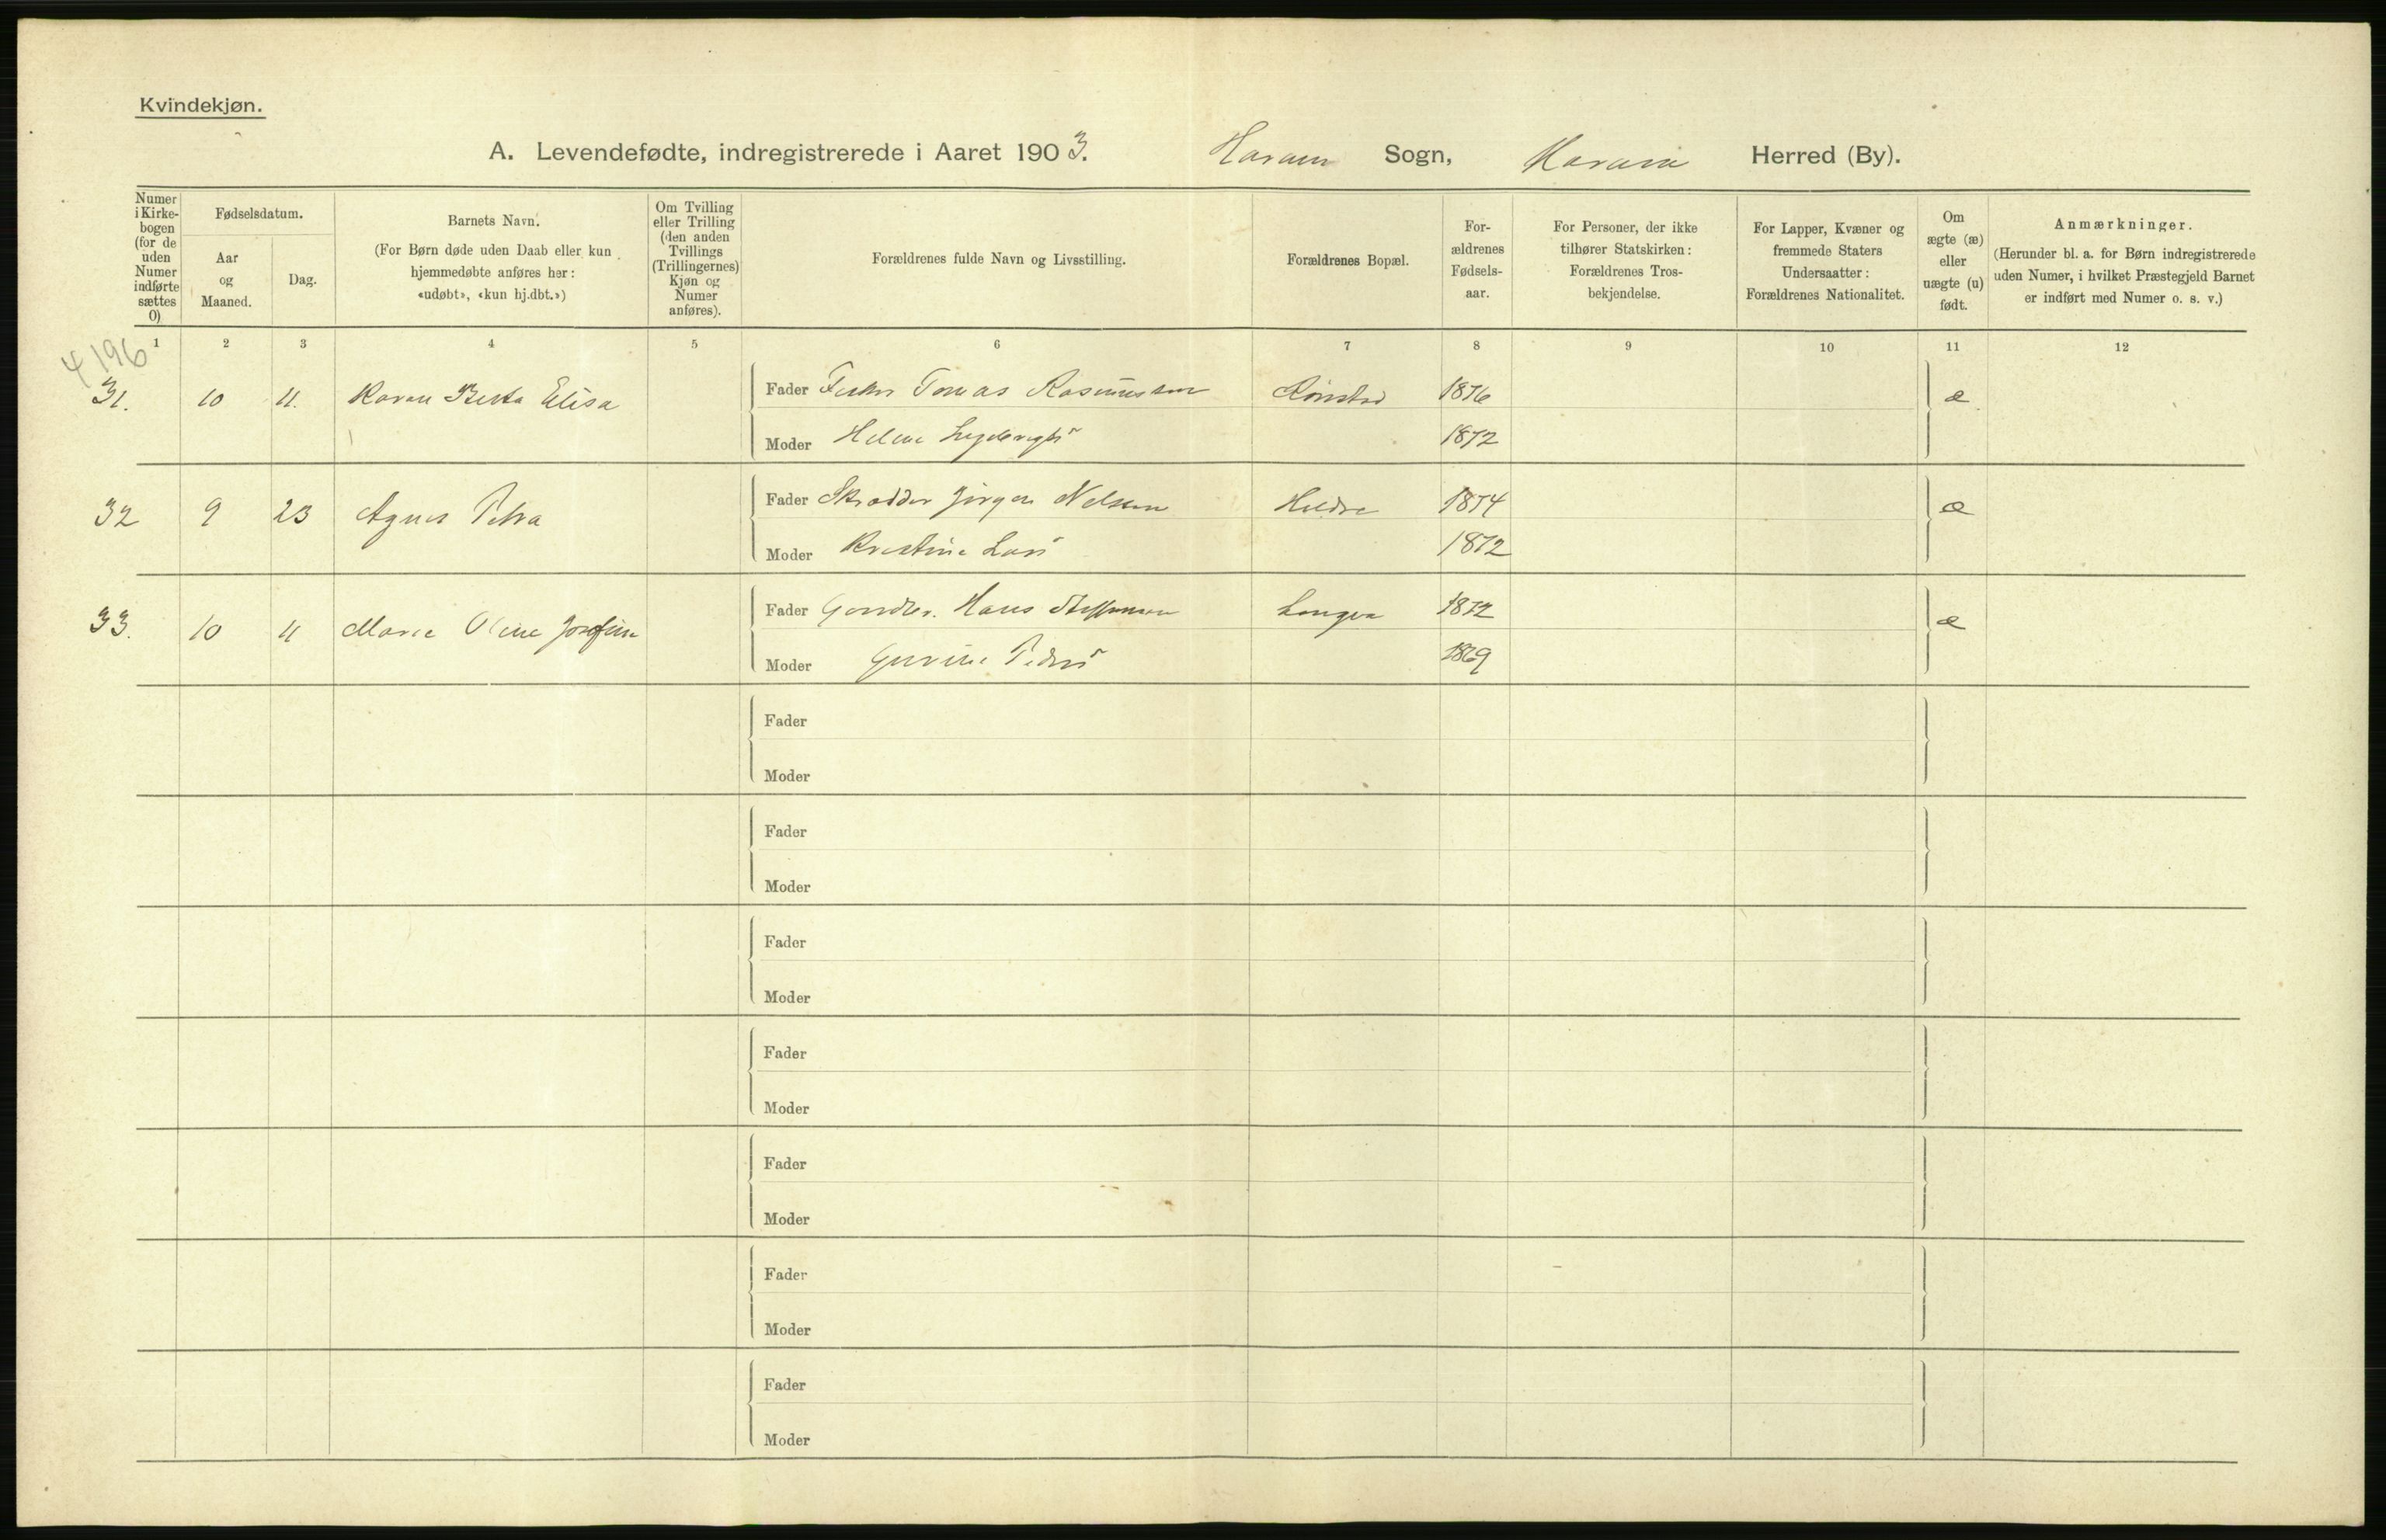 Kvindekjøn.
A. Levendefødte, indregistrerede i Aaret 1903. Haram Sogn, Haram Herred (By).
Numer i Kirkebogen (for de uden Numer indførte sættes 0)
Fødselsdatum.
Aar og Maaned.
Dag.
Barnets Navn.
(For Børn døde uden Daab eller kun hjemmedøbte anføres her: «udøbt», «kun hj.dbt.»)
Om Tvilling eller Trilling (den anden Tvillings (Trillingernes) Kjøn og Numer anføres).
Forældrenes fulde Navn og Livsstilling.
Forældrenes Bopæl.
Forældrenes Fødselsaar.
For Personer, der ikke tilhører Statskirken: Forældrenes Trosbekjendelse.
For Lapper, Kvæner og fremmede Staters Undersaatter: Forældrenes Nationalitet.
Om ægte (æ) eller uægte (u) født.
Anmærkninger.
(Herunder bl. a. for Børn indregistrerede uden Numer, i hvilket Præstegjeld Barnet er indført med Numer o. s. v.)
1 2 3 4 5 6 7 8 9 10 11 12
4196
31. 10 11. Karen Berta Elisa Fader Fisker Tomas Rasmussen Rønstad 1876 æ
Moder Helene 1872
32 9 23 Agnes Petra Fader Skrædder Jørgen Nelsen Hildre 1874 æ
Moder Kristine Lars 1872
33. 10 11 Marie Oline Josefine Fader Gaardbr. Hans Steffensen Longva 1872 æ
Moder Gurine Peders 1869
Fader
Moder
Fader
Moder
Fader
Moder
Fader
Moder
Fader
Moder
Fader
Moder
Fader
Moder